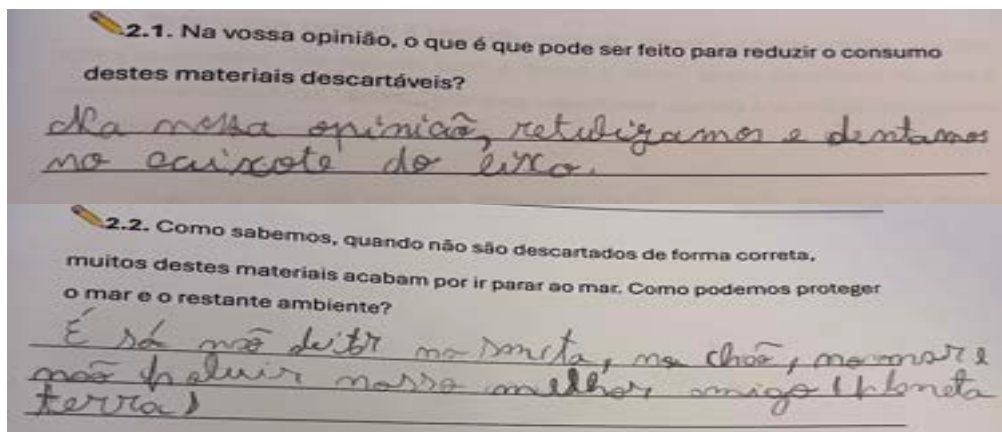 2.1. Na vossa opinião, o que é que pode ser feito para reduzir o consumo
destes materiais descartáveis?
Na nossa opinião, retuligamos e dentamos
no caixote do lixo.
2.2. Como sabemos, quando não são descartados de forma correta,
muitos destes materiais acabam por ir parar ao mar. Como podemos proteger
o mar e o restante ambiente?
É só não deitr na, no chão, no mar e
não poluir nosso melhor amigo (planeta
terra)